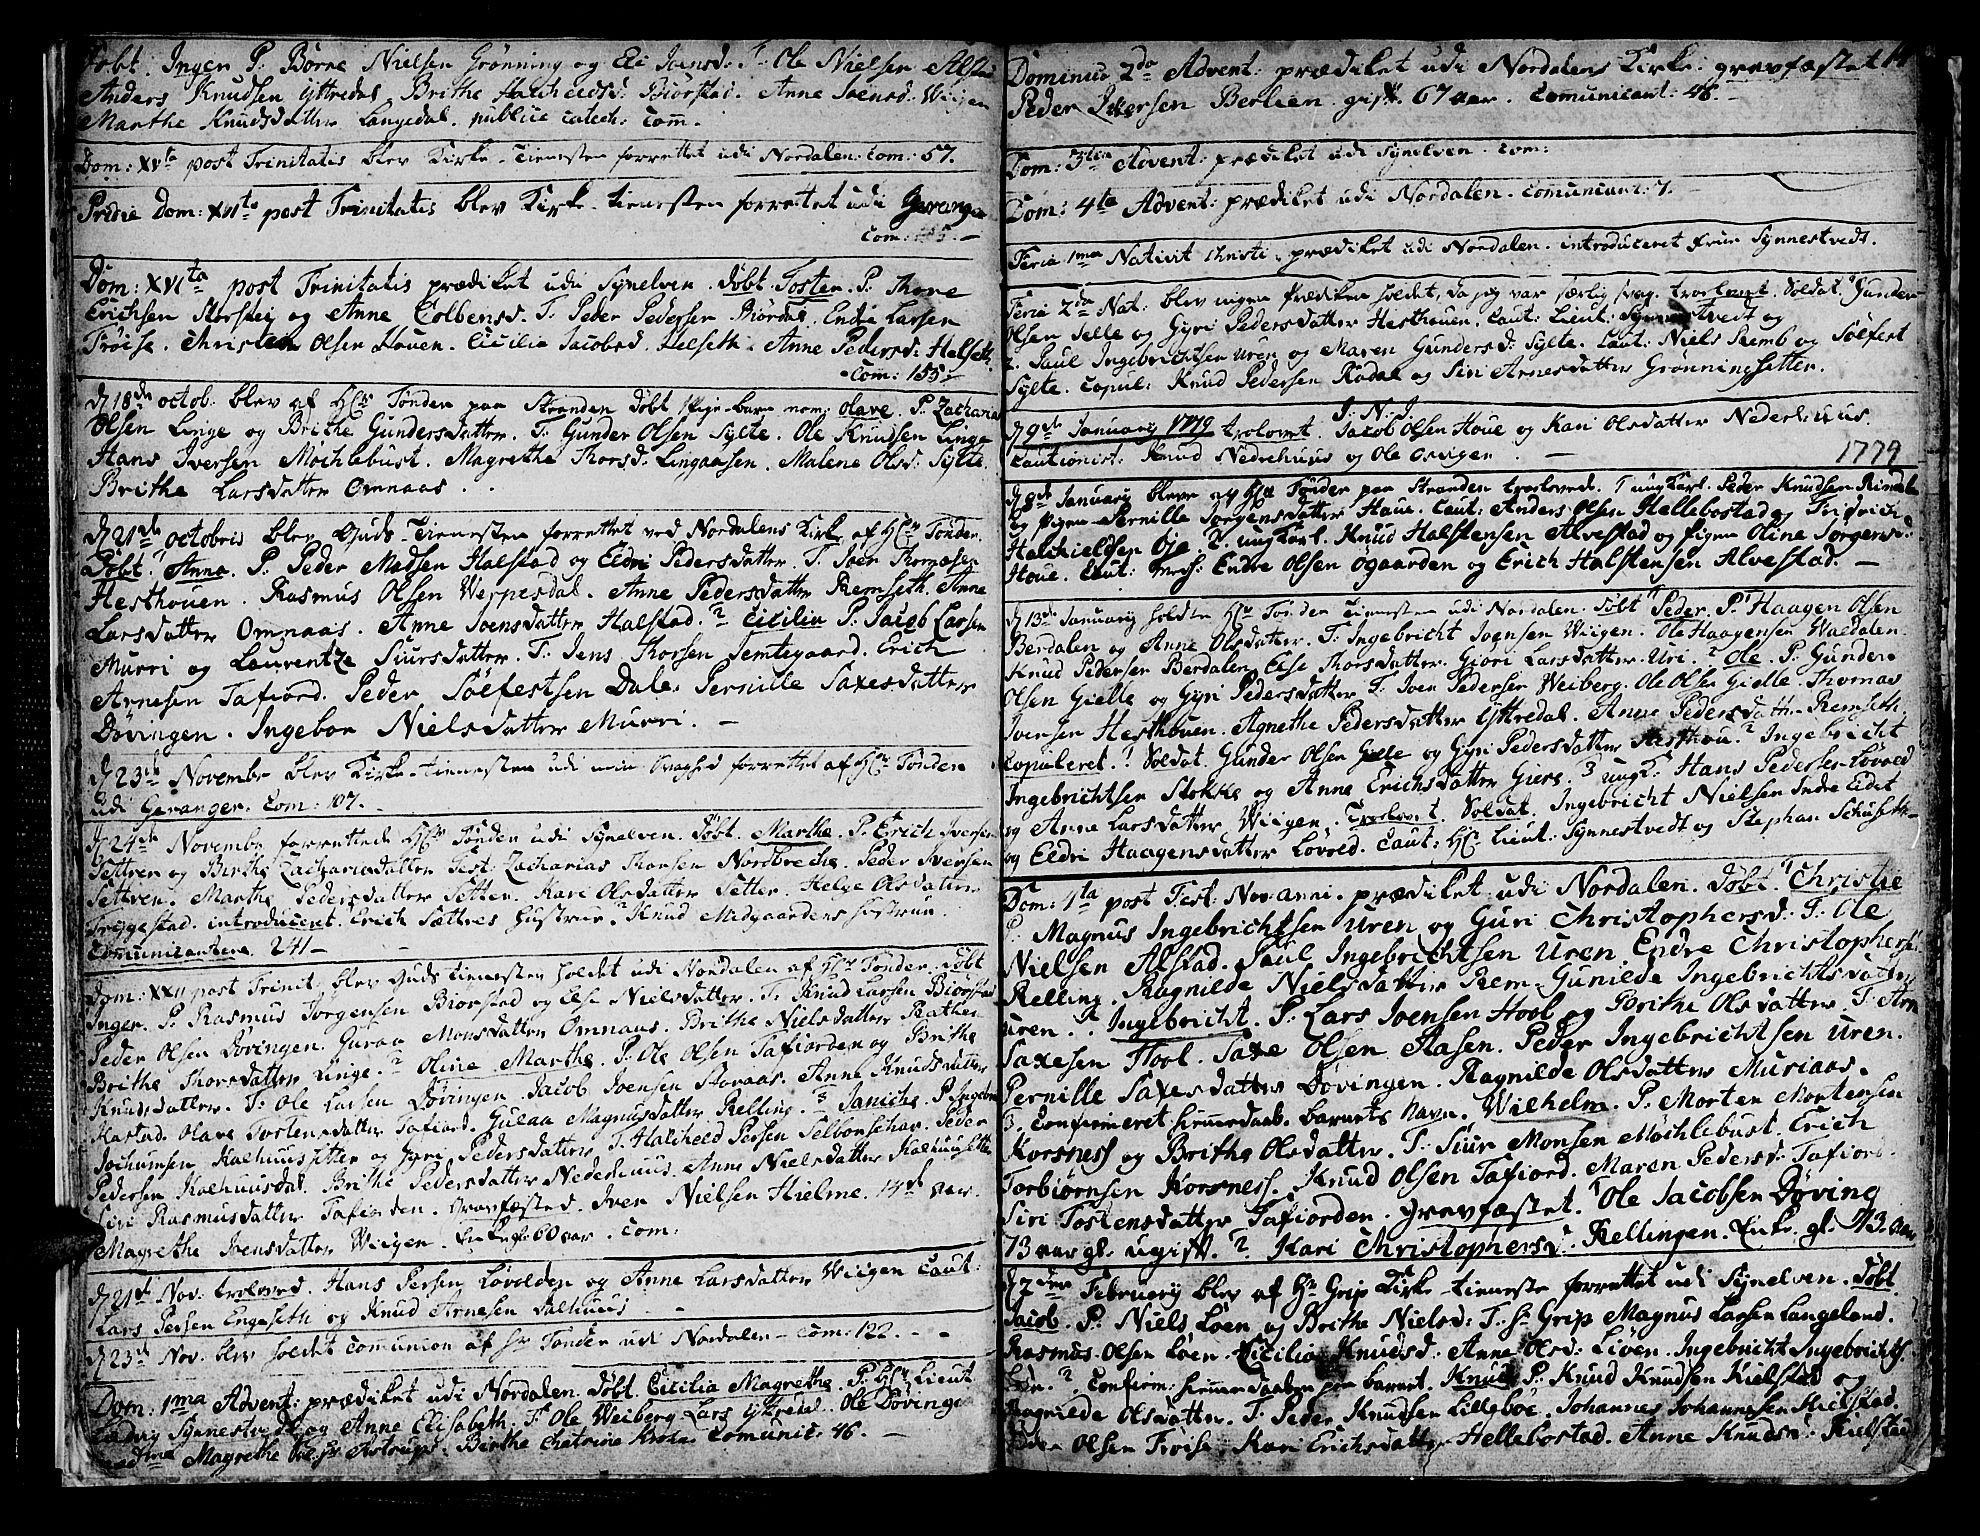 Døbt. Inger P: Børne Nielsen Grønning og Eli Joensd: T: Ole Nielsen Alstad
Anders Knudsen Yttredal Brithe Halchieldsd: Biørstad. Anne Joensd: Wiigen
Marthe Knudsdatter Langedal. publice catech: Com.
Dom: XVta post Trinitatis blev Kirke-Tienesten forrettet udi Nordalen. Com: 57.
Pridie Dom: XVIta post Trinitatis blev Kirke-tienesten forrettet udi Geranger
Com:
Dom: XVIta post Trinitatis prædiket udi Synelven. døbt Tosten. P: Thore
Erichsen Storstei og Anne Colbensd. T: Peder Pedersen Biørdal Endre Larsen
Frøise. Christen Olsen Hoven. Cicilia Jacobsd. Helseth. Anne Pedersd: Halseth
Com: 155.
d 18de octob: blev af Hr Tønder paa Stranden døbt Pige-barn nom: Olave. P: Zacharias
Olsen Linge og Brithe Gundersdatter. T: Gunder Olsen Sylte. Ole Knudsen Linge
Hans Iversen Mochlebust. Magrethe Thorsd: Lingaasen. Malene Olsd: Sylte.
Brithe Larsdatter Omnaas.
d 21de octobris blev Guds-Tienesten forrettet ved Nordalens Kirke af Hr Tønder.
Døbt. 1 Anna. P: Peder Madsen Halstad og Eldri Pedersdatter. T: Joen Thomasen
Hesthouen. Rasmus Olsen Werpesdal. Anne Pedersdatter Remseth. Anne
Larsdatter Omnaas. Anne Joensdatter Halstad. 2 Cicilia P: Jacob Larsen
Murri og Laurentze Siursdatter. T: Jens Thorsen Semtegaard. Erich
Arnesen Tafiord. Peder Sølfestsen Dale. Pernille Saxesdatter
Døvingen. Ingebor Nielsdatter Murri.
d 23de Novembr blev Kirke-tienesten udi min Svaghed forrettet af Hr Tønder
udi Geranger. Com: 107.
d 24de Novembr forrettede Hr Tønder udi Synelven. Døbt. Marthe. P: Erich Iversen
Settren og Birthe Zachariadatter Test: Zacharias Thorsen Nordbreche. Peder Iversen
Settren. Marthe Pedersdatter Setten. Kari Olsdatter Setter. Helge Olsdatter
Tryggestad. introduceret. Erich Sættres Hustrue. Knud Midgaardens Hustrue.
Comunicantene 241.
Dom: XXII post Trinit: blev Guds tienesten holdet udi Nordalen af Hr Tønder. Døbt
Inger. P: Rasmus Jørgensen Biørstad og Else Nielsdatter. T: Knud Larsen Biørstad
Peder Olsen Døvingen. Guraa Monsdatter Omnaas. Brithe Nielsdatter Rathen
Brithe Thorsdatter Linge. 2 Oline Marthe. P: Ole Olsen Tafiorden og Brithe
Knudsdatter. T: Ole Larsen Døvingen. Jacob Joensen Storaas. Anne Knudsdatter
Kastad. Olave Tostensdatter Tafiord. Gulaa Magnusdatter Relling. 3 Janiche. P: Ingebr
Jochumsen Kalhuussetter og Gyri Pedersdatter. T: Halchield Persen Selbonschar. Peder
Pedersen Kalhuusdal. Brithe Pedersdatter Nederhuus. Anne Nielsdatter Kalhuusetter
Siri Rasmusdatter Tafiorden. Gravfæsted. Iver Nielsen Hielme. aar.
Magrethe Joensdatter Wiigen. Enke gl: 60 aar. Com:
d 21de Nov: trolowed. Hans Persen Løvolden og Anne Larsdatter Wiigen Caut:
Lars Persen Engeseth og Knud Arnesen Dalhuus
d 23de Nov. blev holdet communion af Hr Tønder udi Nordalen. Com: 122.
Dom: 1ma Advent: prædiket udi Nordalen. Døbt. Cicilia Magrethe. P: Hr Lieut
Ludvig Synnestvedt og Anne Elisabeth. T: Ole Weiberg Lars Yttredal. Ole Døvingen
Magrethe Birthe Chatrine Krohn. Comunic: 46.
14
Dominus 2da Advent: prædiket udi Nordalens Kirke. gravfæstet
Peder Iversen Berlien. gift. 67 aar. Comunicant: 48.
Dom: 3tia Advent: prædiket udi Synelven. Com:
Dom: 4ta Advent: prædiket udi Nordalen. Comunicant: 7.
Feria 1ma Nativit Christi. prædiket udi Nordalen. introduceret Frue Synnestvedt.
Feria 2da Nat: blev ingen Prædiken holdet, da jeg var særlig svag. trolovet. Soldat Gunder
Olsen Jelle og Gyri Pedersdatter Hesthouen. Caut: Lieut. Synnestvedt og
2. Paul Ingebrichtsen Uren og Maren Gundersd: Sylte. Caut: Niels Remb og Sølfest
Sylte. Copul: Knud Pedersen Rødal og Siri Arnesdatter Grønningsetter.
J: N: J:
d 9de January 1779 trolovet. Jacob Olsen Houe og Kari Olsdatter Nederhuus.
Cautionist: Knud Nedrehuus og Ole Oevigen
1779
d 8de January bleve af Hr Tønder paa Stranden trolovede. 1 ungKarl. Peder Knudsen Rindal
og Pigen Pernille Jørgensdatter Houe. Caut: Anders Olsen Hellebostad og Fridrich
Halchieldsen Øje 2. ungKarl. Knud Halstensen Alvestad og Pigen Oline Jørgensd:
Houe. Caut: Mrs: Endre Olsen Øgaarden og Erich Halstensen Alvestad.
d 13de January holdte Hr Tønder tienesten udi Nordalen. Døbt 1 Peder. P: Haagen Olsen
Berdalen og Anne Olsdatter. T: Ingebricht Joensen Wiigen. Ole Haagensen Waldalen.
Knud Pedersen Berdalen Else Thorsdatter. Giøri Larsdatter Uri. 2 Ole. P: Gunder
Olsen Gielle og Gyri Pedersdatter T: Joen Pedersen Weiberg. Ole Olsen Gielle. Thomas
Iversen Hesthouen. Agnethe Pedersdatter Yttredal. Anne Pedersdatter Remseth.
Copuleret. 1 Soldat. Gunder Olsen Gielle og Gyri Pedersdatter Hesthou. 2 Ingebricht
Ingebrichtsen Stokke og Anne Erichsdatter Giere. 3 ungK: Hans Pedersen Løvold
og Anne Larsdatter Wiigen. Trolovet. Soldat. Ingebricht Nielsen Indre Eidet
og Eldri Haagensdatter Løvold. Caut: Hr Lieut: Synnestvedt og Stephan Schuseth.
Dom: 1ta post Fest: Nov: Anni. prædiket udi Nordalen. Døbt. 1 Christie
P. Magnus Ingebrichtsen Uren og Guri Christophersd: T: Ole
Nielsen Alstad. Paul Ingebrichtsen Uren. Endre Christophersen
Relling. Ragnilde Nielsdatter Rem. Gunilde Ingebrichtsdatter
Uren. 2. Ingebricht. P: Lars Joensen Hool og Brithe Olsdatter. T: Arn
Saxesen Hool. Saxe Olsen Aasen. Peder Ingebrichtsen Uren.
Pernille Saxesdatter Døvingen. Ragnilde Olsdatter Muriaas.
3. Confirmeret hiemmedaab. barnets Navn. Wilhelm. P. Morten Mortensen
Korsness og Brithe Olsdatter. T: Siur Monsen Mochlebust. Erich
Torbiørnsen Korsness. Knud Olsen Tafiord. Maren Pedersd: Tafiord.
Siri Tostensdatter Tafiorden. Gravfæstet. 1 Ole Jacobsen Døving
73 aar gl: ugift. 2. Kari Christophersd: Rellingen. Enke. gl: 73. aar
d 7den February blev af Hr Grip Kirke-tieneste forrettet udi Synelven. Døbt
Jacob. P: Niels Løen og Brithe Nielsd: T: Hr Grip Magnus Larsen Langeland.
Rasmus Olsen Løen. Cicilia Knudsd: Anne Olsd: Liøen. Ingebricht Ingebrichts.
Løen. 2. Confirm: hiemmedaaben paa barnet. Knud P: Knud Knudsen Kielstad og
Ragnilde Olsdatter. T: Peder Knudsen Lillebøe. Johannes Johannesen Kielstad.
Peder Olsen Frøise. Kari Erichsdatter Hellebostad. Anne Knudsd: Kielstad